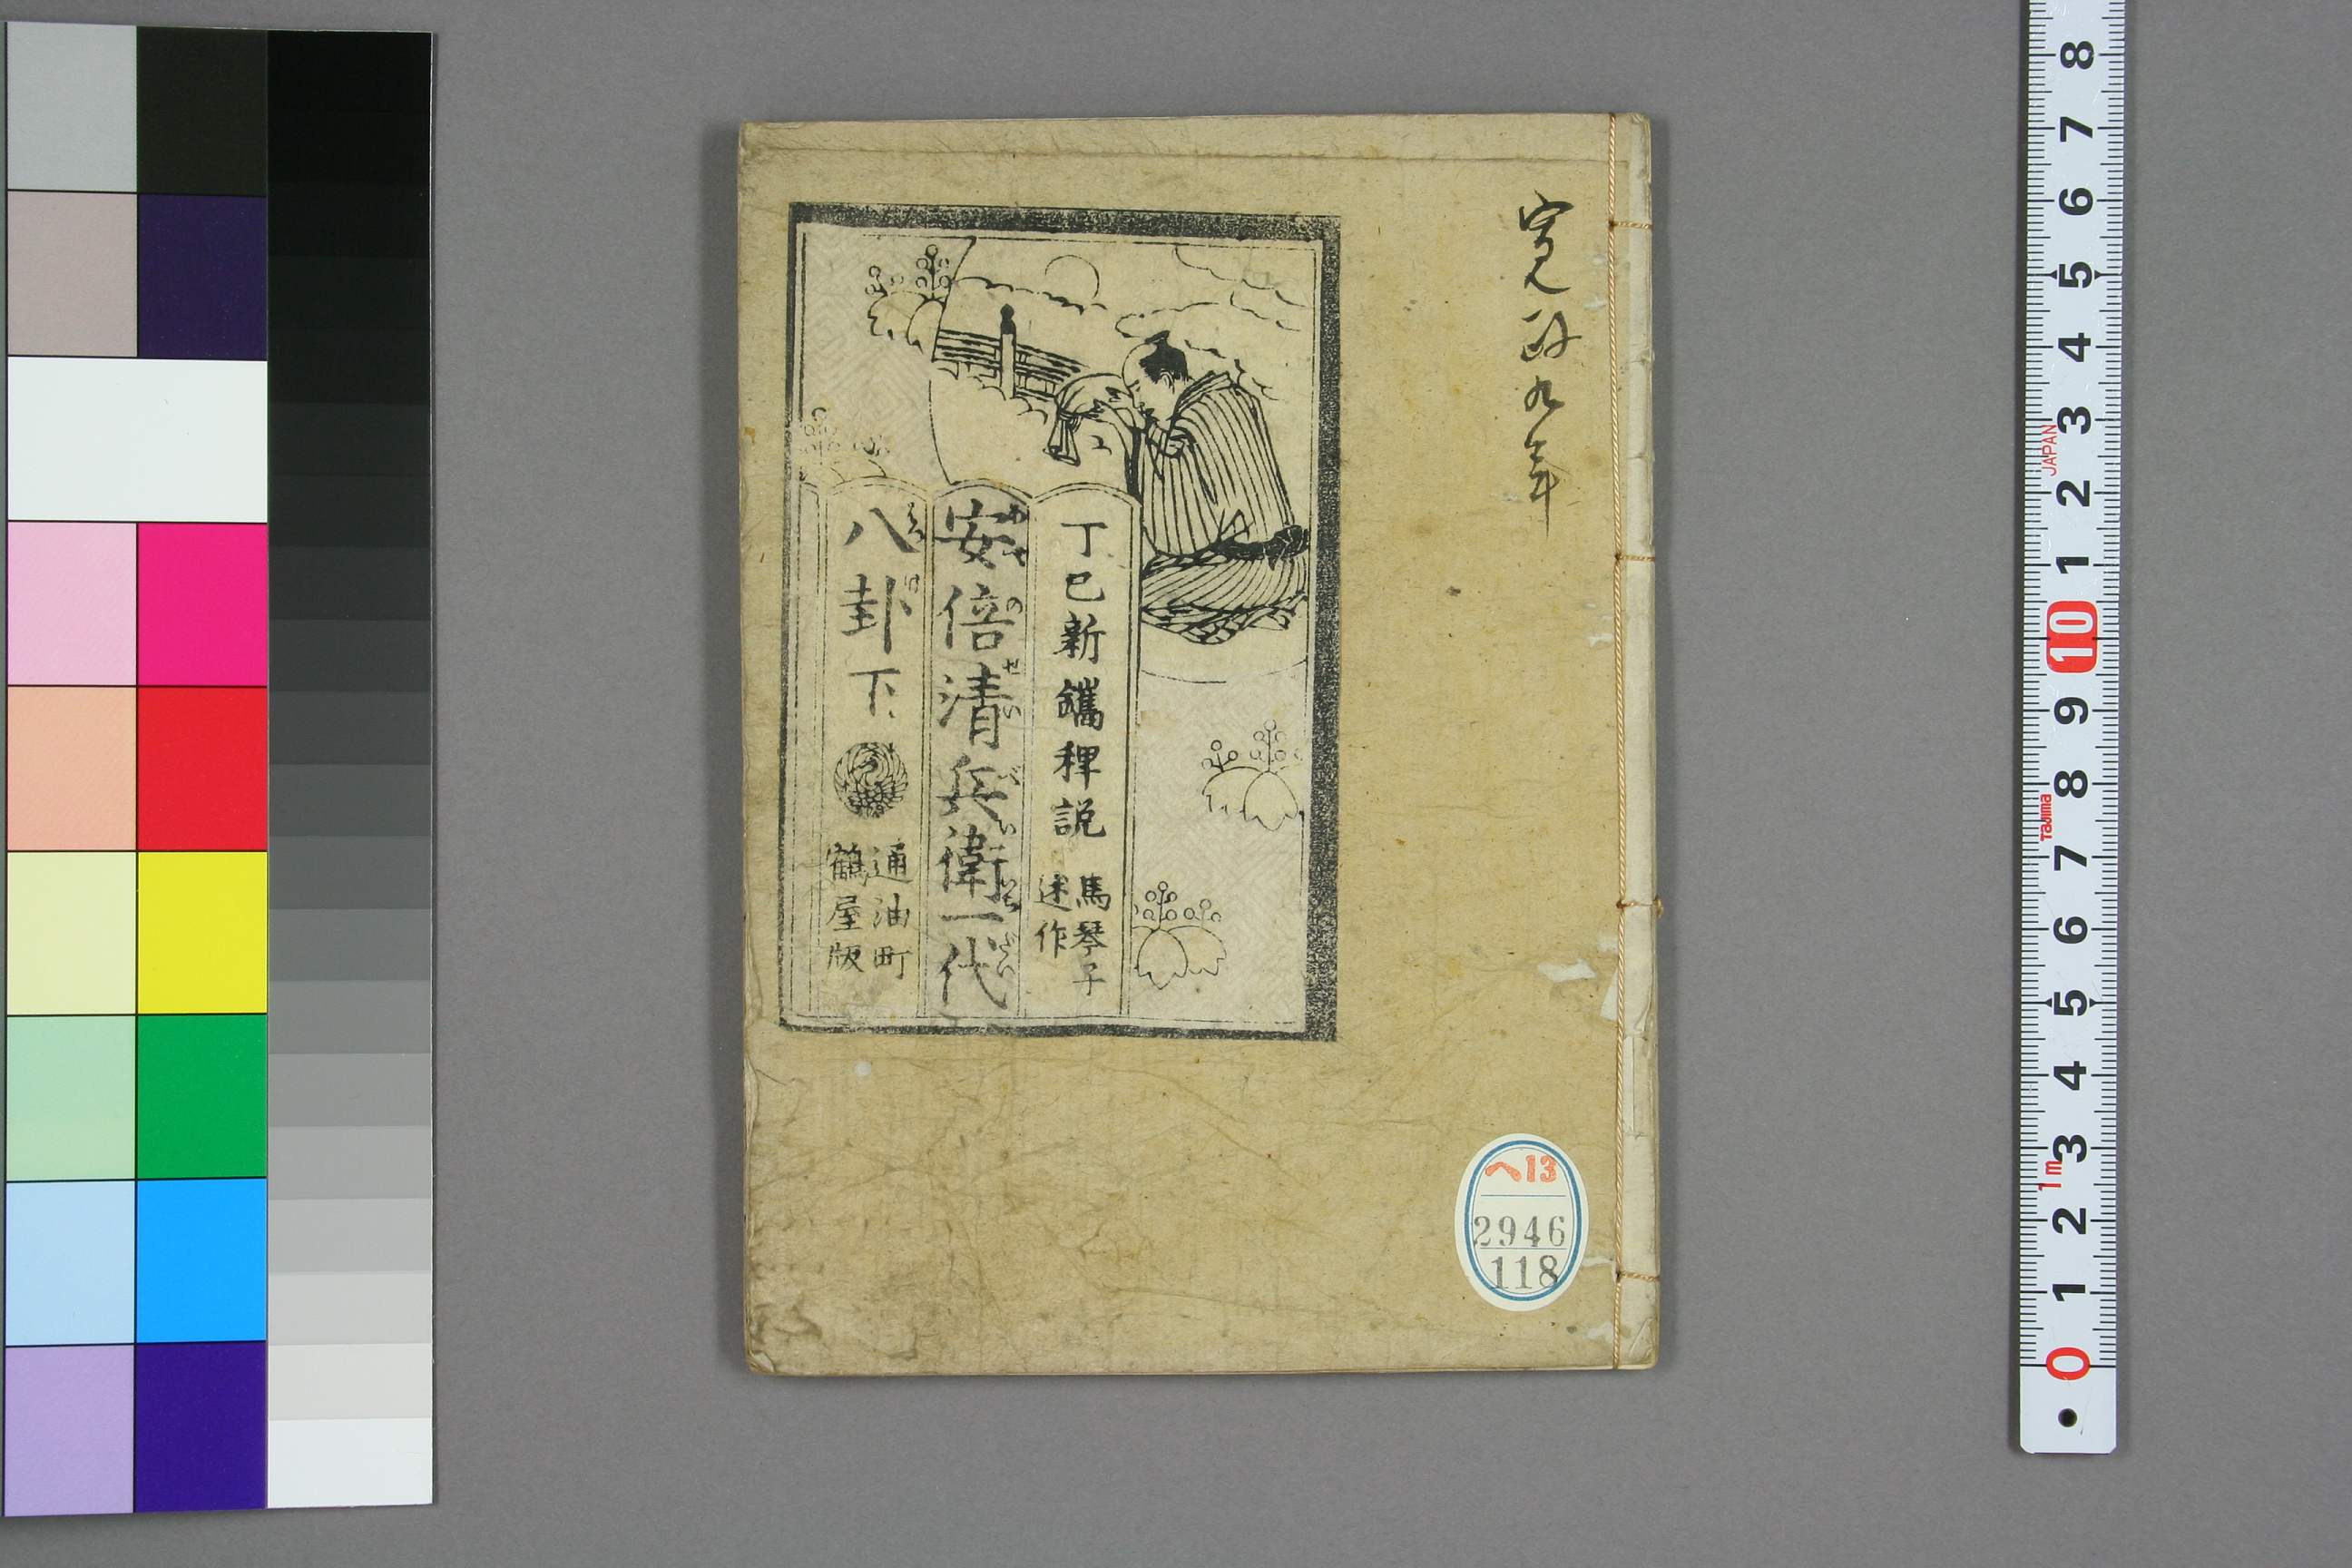 寛政九年
丁巳新鐫稗説
馬琴子
述作
安倍清兵衛一代
あべのせいべいいちだい
八卦下
はつけ
通油町
鶴屋版
へ13
2946
118
8
7
6
5
4
3
2
1
10
9
8
7
6
5
4
3
2
1
0
JAPAN
Tajima
1m